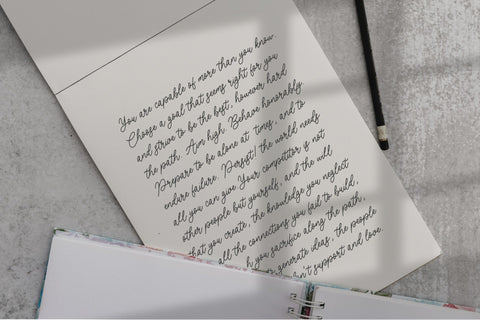 You are capable of more than you know.
Choose a goal that seems right for you
and strive to be the best, however hard
the path. Aim high. Behave honorably
Prepare to be alone at times, and to
endure failure. Persist! the world needs
all you can give. Your competitor is not
other people but yourself, and the will
that you create, the knowledge you neglect
all the connections you fail to build,
you sacrifice along the path,
generate ideas, the people
support and love.